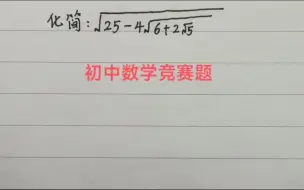 化简:√(25-4√(6+2√5))
初中数学竞赛题